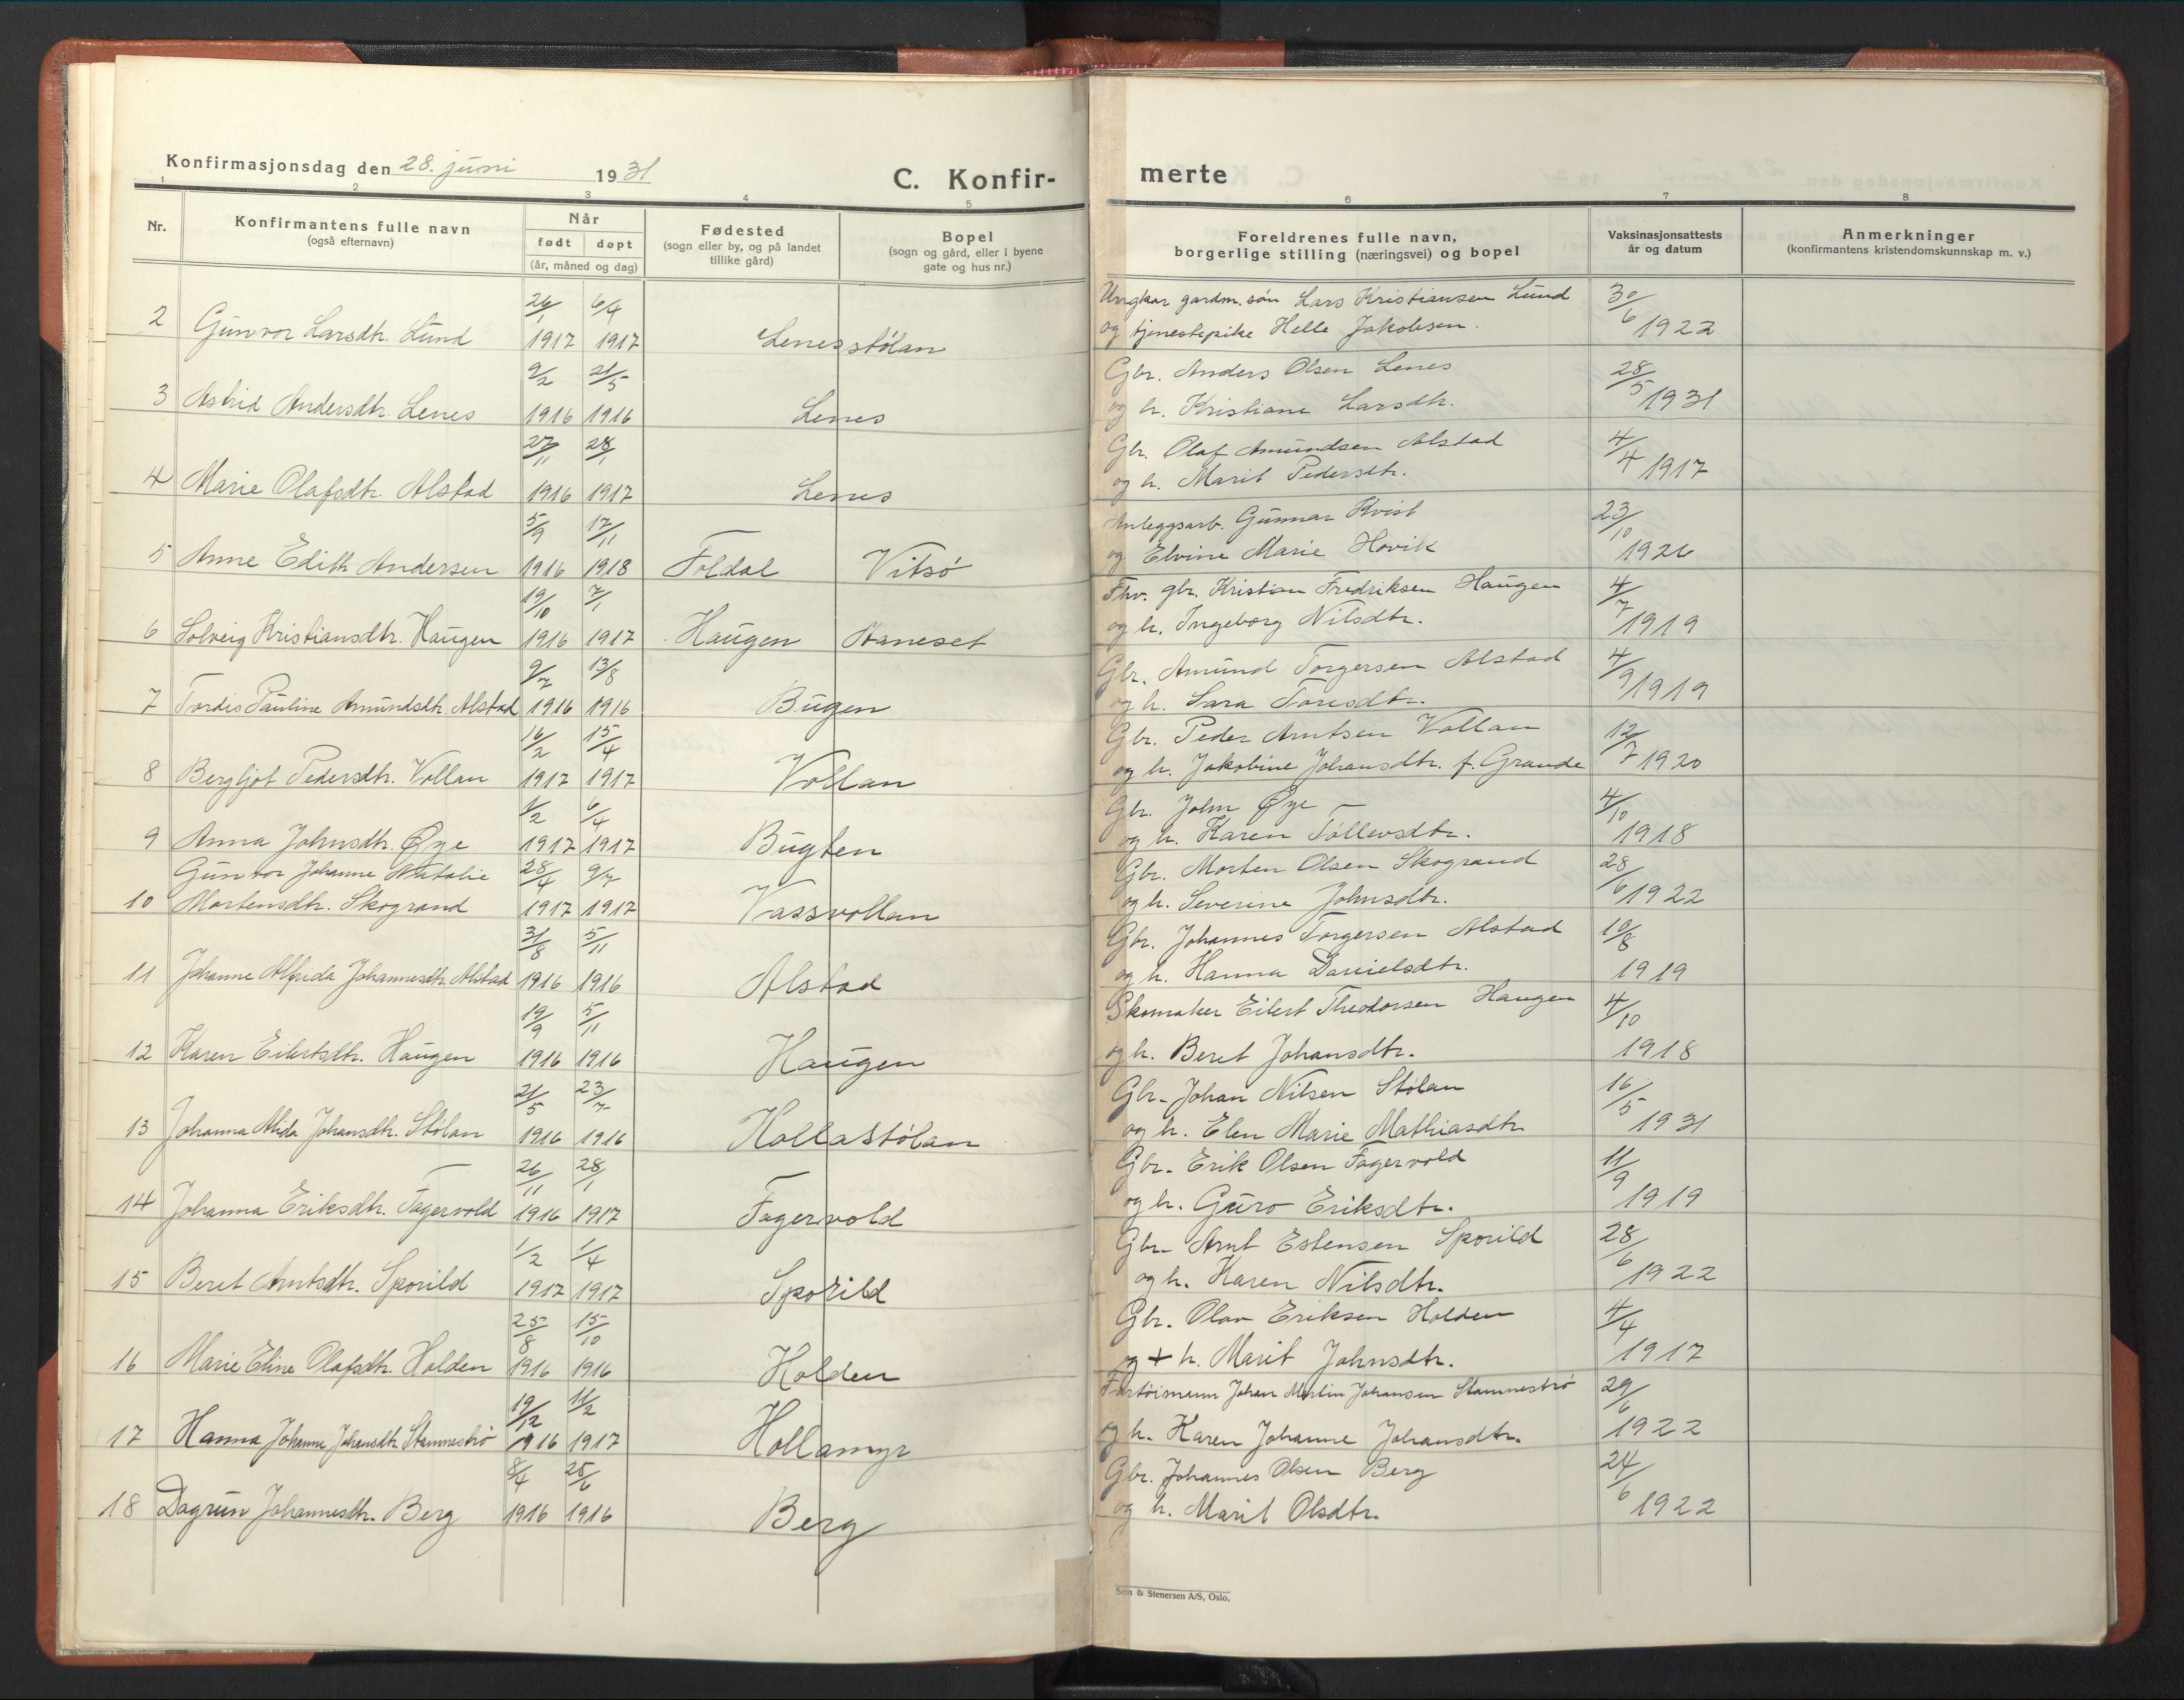 Konfirmasjonsdag den 28. juni 1931
C. Konfir-
merte
1 2 3 4 5 6 7 8
Nr.
Konfirmantens fulle navn
(også efternavn)
Når
født døpt
(år, måned og dag)
Fødested
(sogn eller by, og på landet
tillike gård)
Bopel
(sogn og gård, eller i byene
gate og hus nr.)
Foreldrenes fulle navn,
borgerlige stilling (næringsvei) og bopel
Vaksinasjonsattests
år og datum
Anmerkninger
(konfirmantens kristendomskunnskap m. v.)
26/1 6/4 Ungkar gardm. søn Lars Kristiansen Lund 30/6
2 Gunvor Larsdtr. Lund 1917 1917 Lenesstølan og tjenestepike Helle Jakobsen. 1922
9/2 21/5 Gbr. Anders Olsen Lenes 28/5
3 Astrid Andersdtr Lenes 1916 1916 Lenes og h. Kristiane Larsdtr. 1931
27/11 28/1 Gbr. Olaf Amundsen Alstad 4/4
4 Marie Olafsdtr Alstad 1916 1917 Lenes og h. Marit Pedersdtr. 1917
5/9 17/11 Anleggsarb. Gunnar Kvist 23/10
5 Anne Edith Andersen 1916 1918 Foldal Vitsø og Elvine Marie Hovik 1926
19/10 7/1 Fhv. gbr. Kristian Fredriksen Haugen 4/7
6 Solveig Kristiansdtr. Haugen 1916 1917 Haugen Staneset og h. Ingeborg Nilsdtr. 1919
9/7 13/8 Gbr. Amund Torgersen Alstad 4/9
7 Tordis Pauline Amundsdtr Alstad 1916 1916 Bugen og h. Sara Toresdtr. 1919
16/2 15/4 Gbr. Peder Arntsen Vollan 12/7
8 Bergljot Pedersdtr. Vollan 1917 1917 Vollan og h. Jakobine Johansdtr. f. Grande 1920
1/2 6/4 Gbr. John Øye 4/10
9 Anna Johnsdtr. Øye 1917 1917 Bugten og h. Karen Tollevsdtr. 1918
Gunvor Johanne Natalie 28/4 9/7 Gbr. Morten Olsen Skogrand 28/6
10 Mortensdtr. Skogrand 1917 1917 Vassvollan og h. Severine Johnsdtr. 1922
31/8 5/11 Gbr. Johannes Torgersen Alstad 10/8
11 Johanne Alfrida Johannesdtr Alstad 1916 1916 Alstad og h. Hanna Danielsdtr. 1919
19/9 5/11 Skomaker Eilert Theodorsen Haugen 4/10
12 Karen Eilertsdtr. Haugen 1916 1916 Haugen og h. Beret Johansdtr. 1918
21/5 23/7 Gbr. Johan Nilsen Stølan 16/5
13 Johanna Alida Johansdtr. Stølan 1916 1916 Hollastølan og h. Elen Marie Mathiasdtr 1931
26/11 28/1 Gbr. Erik Olsen Fagervold 11/9
14 Johanna Eriksdtr. Fagervold 1916 1917 Fagervold og h. Guro Eriksdtr. 1919
1/2 1/4 Gbr. Arnt Estensen Sporild 28/6
15 Beret Arntsdtr. Sporild 1917 1917 Sporild og h. Karen Nilsdtr. 1922
25/8 15/10 Gbr. Olav Eriksen Holden 4/4
16 Marie Eline Olafsdtr. Holden 1916 1916 Holden og + h. Marit Johnsdtr. 1917
19/12 11/2 Fartøismann Johan Martin Johansen Stamnestrø 29/6
17 Hanna Johanne Johansdtr Stamnestrø 1916 1917 Hollamyr og h. Karen Johanne Johansdtr. 1922
8/4 25/6 Gbr. Johannes Olsen Berg 24/6
18 Dagrun Johannesdtr. Berg 1916 1916 Berg og h. Marit Olsdtr. 1922
Sem & Stenersen A/S, Oslo.